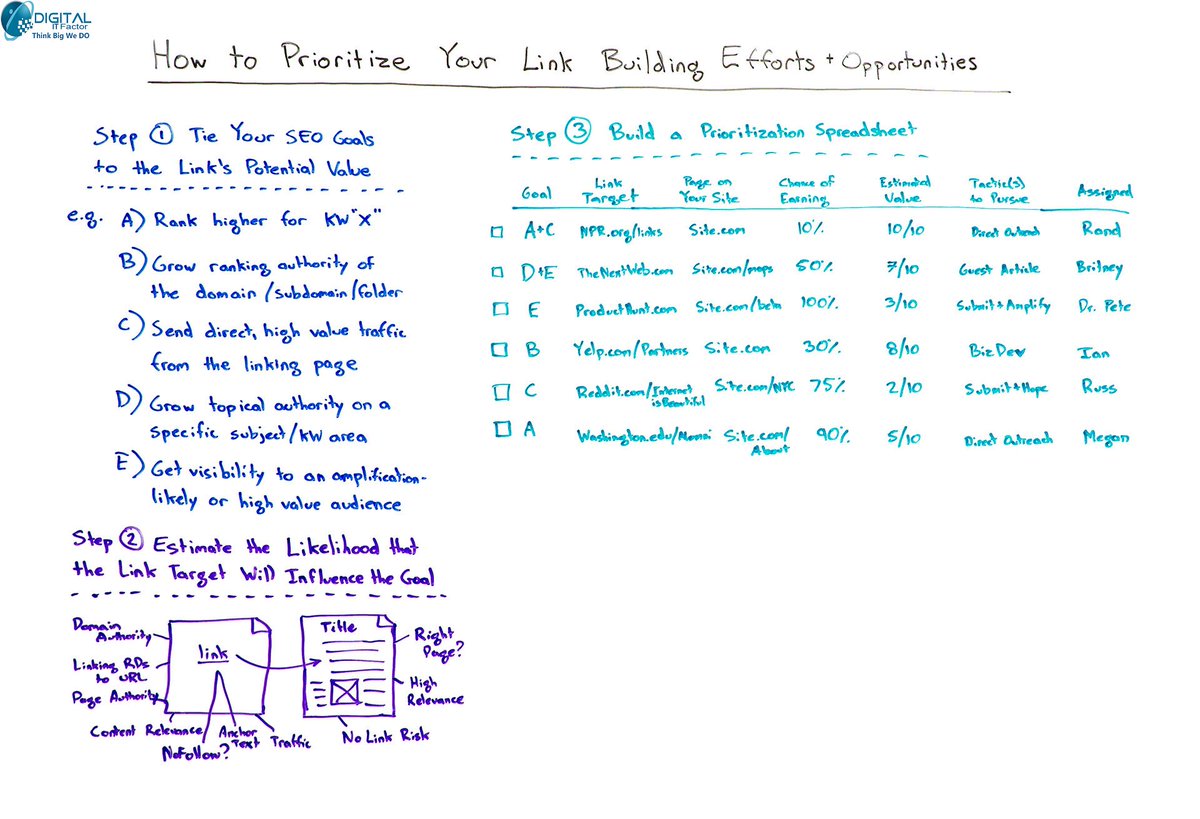 DIGITAL
IT Factor
Think Big We DO
How to Prioritize Your Link Building Efforts + Opportunities
Step 1 Tie Your SEO Goals
to the Link's Potential Value
e.g. A) Rank higher for KW "X"
B) Grow ranking authority of
the domain/subdomain/folder
C) Send direct, high value traffic
from the linking page
D) Grow topical authority on a
specific subject/KW area
E) Get visibility to an amplification-
likely or high value audience
Step 2 Estimate the Likelihood that
the Link Target Will Influence the Goal
Domain
Authority
Linking RDs
to URL
Page Authority
Content Relevance
NoFollow?
Anchor
Text
Traffic
link
Title
Right
Page?
High
Relevance
No Link Risk
Step 3 Build a Prioritization Spreadsheet
Goal Link Target Page on Your Site Chance of Earning Estimated Value Tactic(s) to Pursue Assigned
A+C NPR.org/links Site.com 10% 10/10 Direct Outreach Rand
D+E TheNextWeb.com Site.com/maps 50% 7/10 Guest Article Britney
E ProductHunt.com Site.com/beta 100% 3/10 Submit + Amplify Dr. Pete
B Yelp.com/Partners Site.com 30% 8/10 BizDev Ian
C Reddit.com/Internet isBeautiful Site.com/NYC 75% 2/10 Submit + Hope Russ
A Washington.edu/ Site.com/About 90% 5/10 Direct Outreach Megan